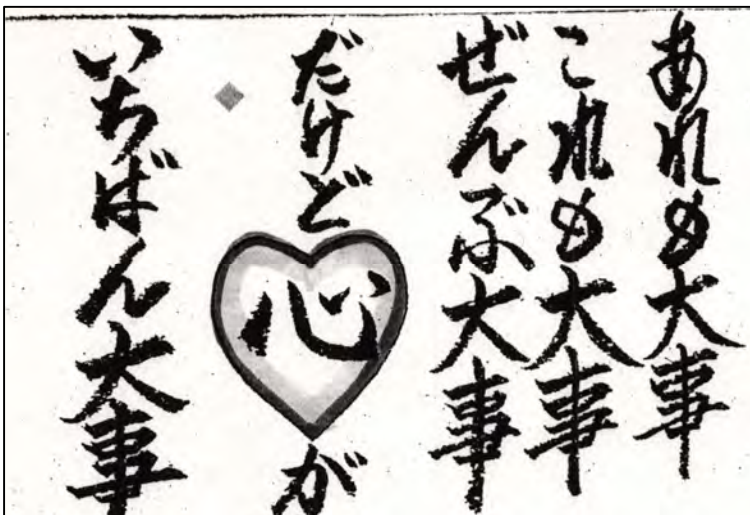 あれも大事
これも大事
ぜんぶ大事
だけど心が
いちばん大事